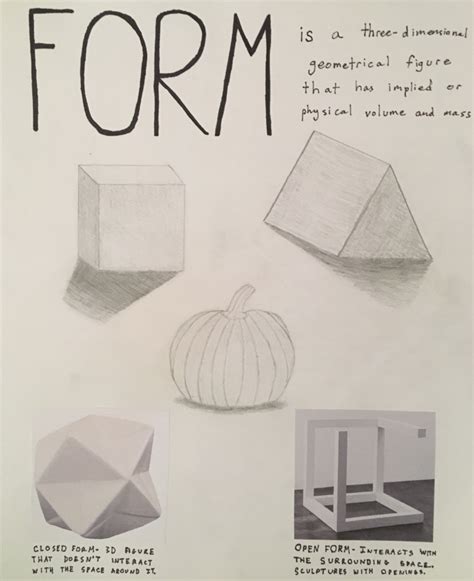 FORM
is a three-dimensional
geometrical figure
that has implied or
physical volume and mass
CLOSED FORM- 3D FIGURE
THAT DOESN'T INTERACT
WITH THE SPACE AROUND IT.
OPEN FORM- INTERACTS WITH
THE SURROUNDING SPACE.
SCULPTURES WITH OPENINGS.